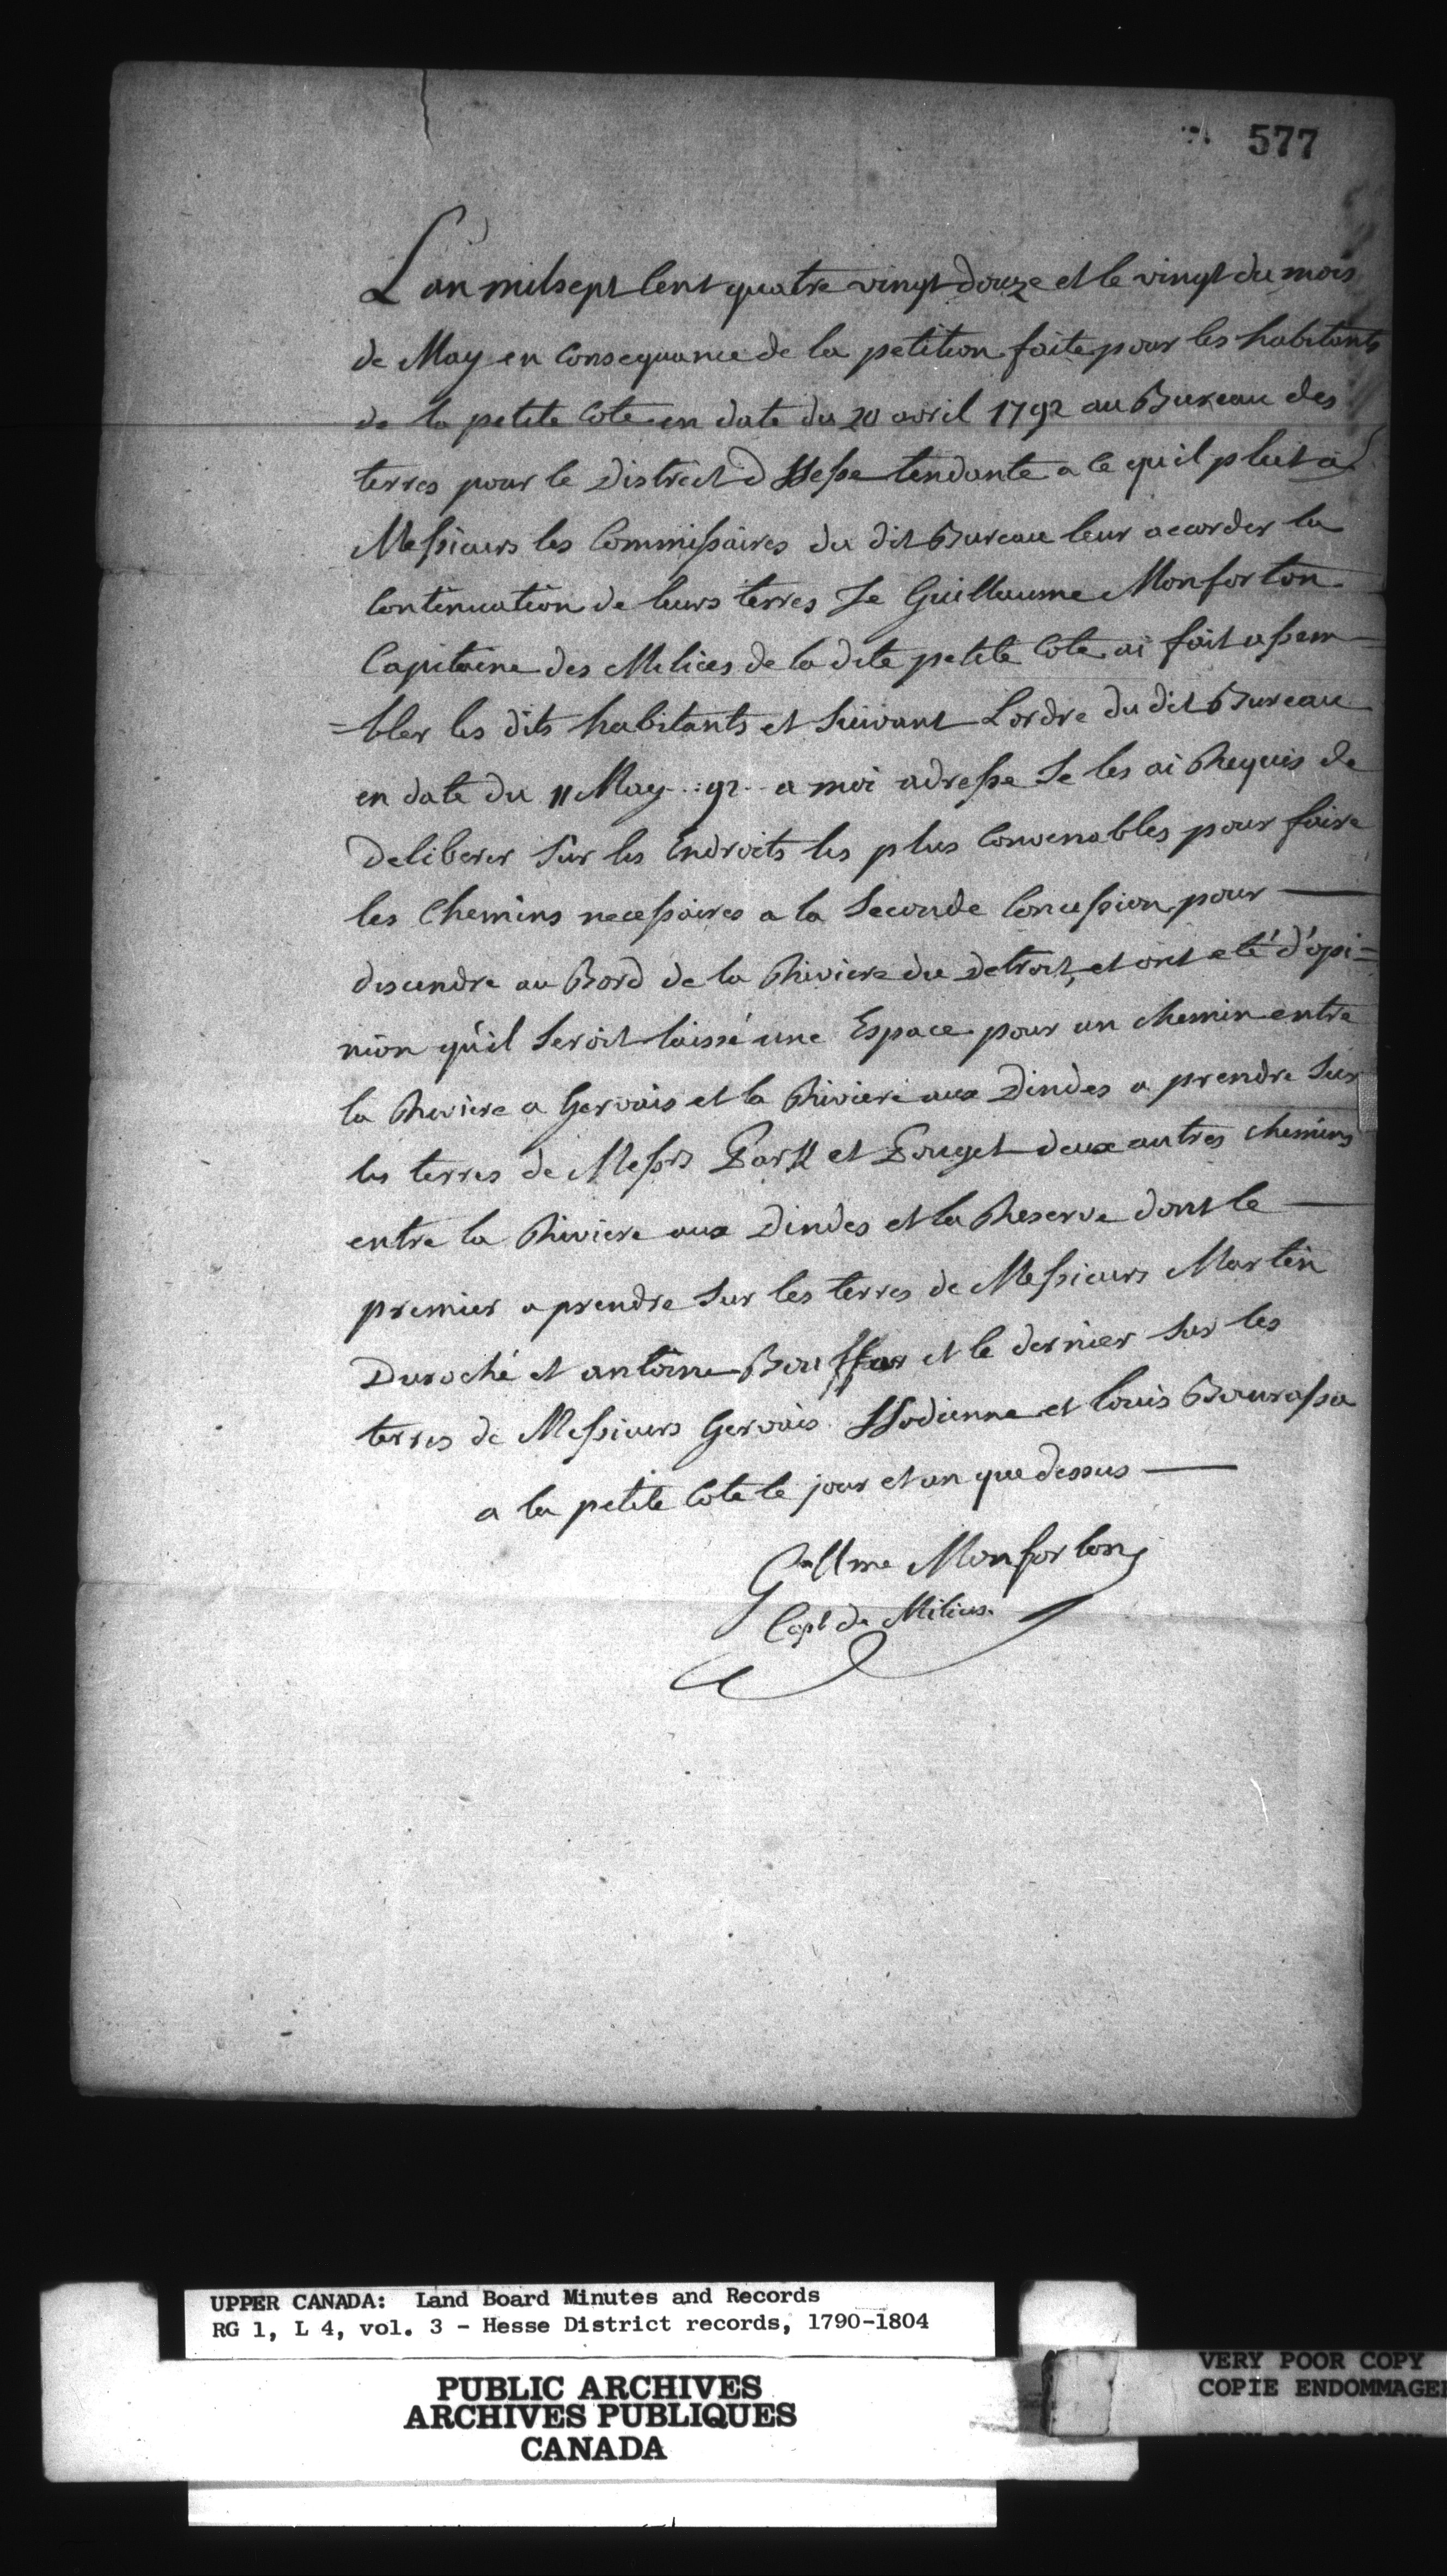 577
L'an mil sept Cent quatre vingt douze et le vingt du mois
de May en Consequance de la petition faite pour les habitants
de la petite Cote en date du 20 avril 1792 au Bureau des
terres pour le District d Hesse tendante a ce qu'il plut a
Messieurs les Commissaires du dit Bureau leur accorder la
Continuation de leurs terres Je Guillaume Monforton
Capitaine des Milices de la dite petite Cote ai fait assem=
=bler les dits habitants et Suivant L'ordre du dit Bureau
en date du 11 May :92 a moi adresse Je les ai Requis de
Deliberer Sur les Endroits les plus Convenables pour faire
les Chemins necessaires a la Seconde Concession pour —
descendre au Bord de la Riviere du Detroit, et ont eté d'opi=
nion qu'il Seroit laissé une Espace pour un chemin entre
la Riviere a Gervais et la Riviere aux Dindes a prendre Sur
les terres de Messrs Park et Pouget deux autres chemins
entre la Riviere aux Dindes et la Reserve dont le —
premier a prendre Sur les terres de Messieurs Martin
Duroché et antoine Bouffar et le dernier Sur les
terres de Messieurs Gervais Hodienne et Louis Bourassa
a la petite Cote le jour et an que dessus —
Gllme Monforton
Capt de Milices
UPPER CANADA: Land Board Minutes and Records
RG 1, L 4, vol. 3 - Hesse District records, 1790-1804
PUBLIC ARCHIVES
ARCHIVES PUBLIQUES
CANADA
VERY POOR COPY
COPIE ENDOMMAGEE